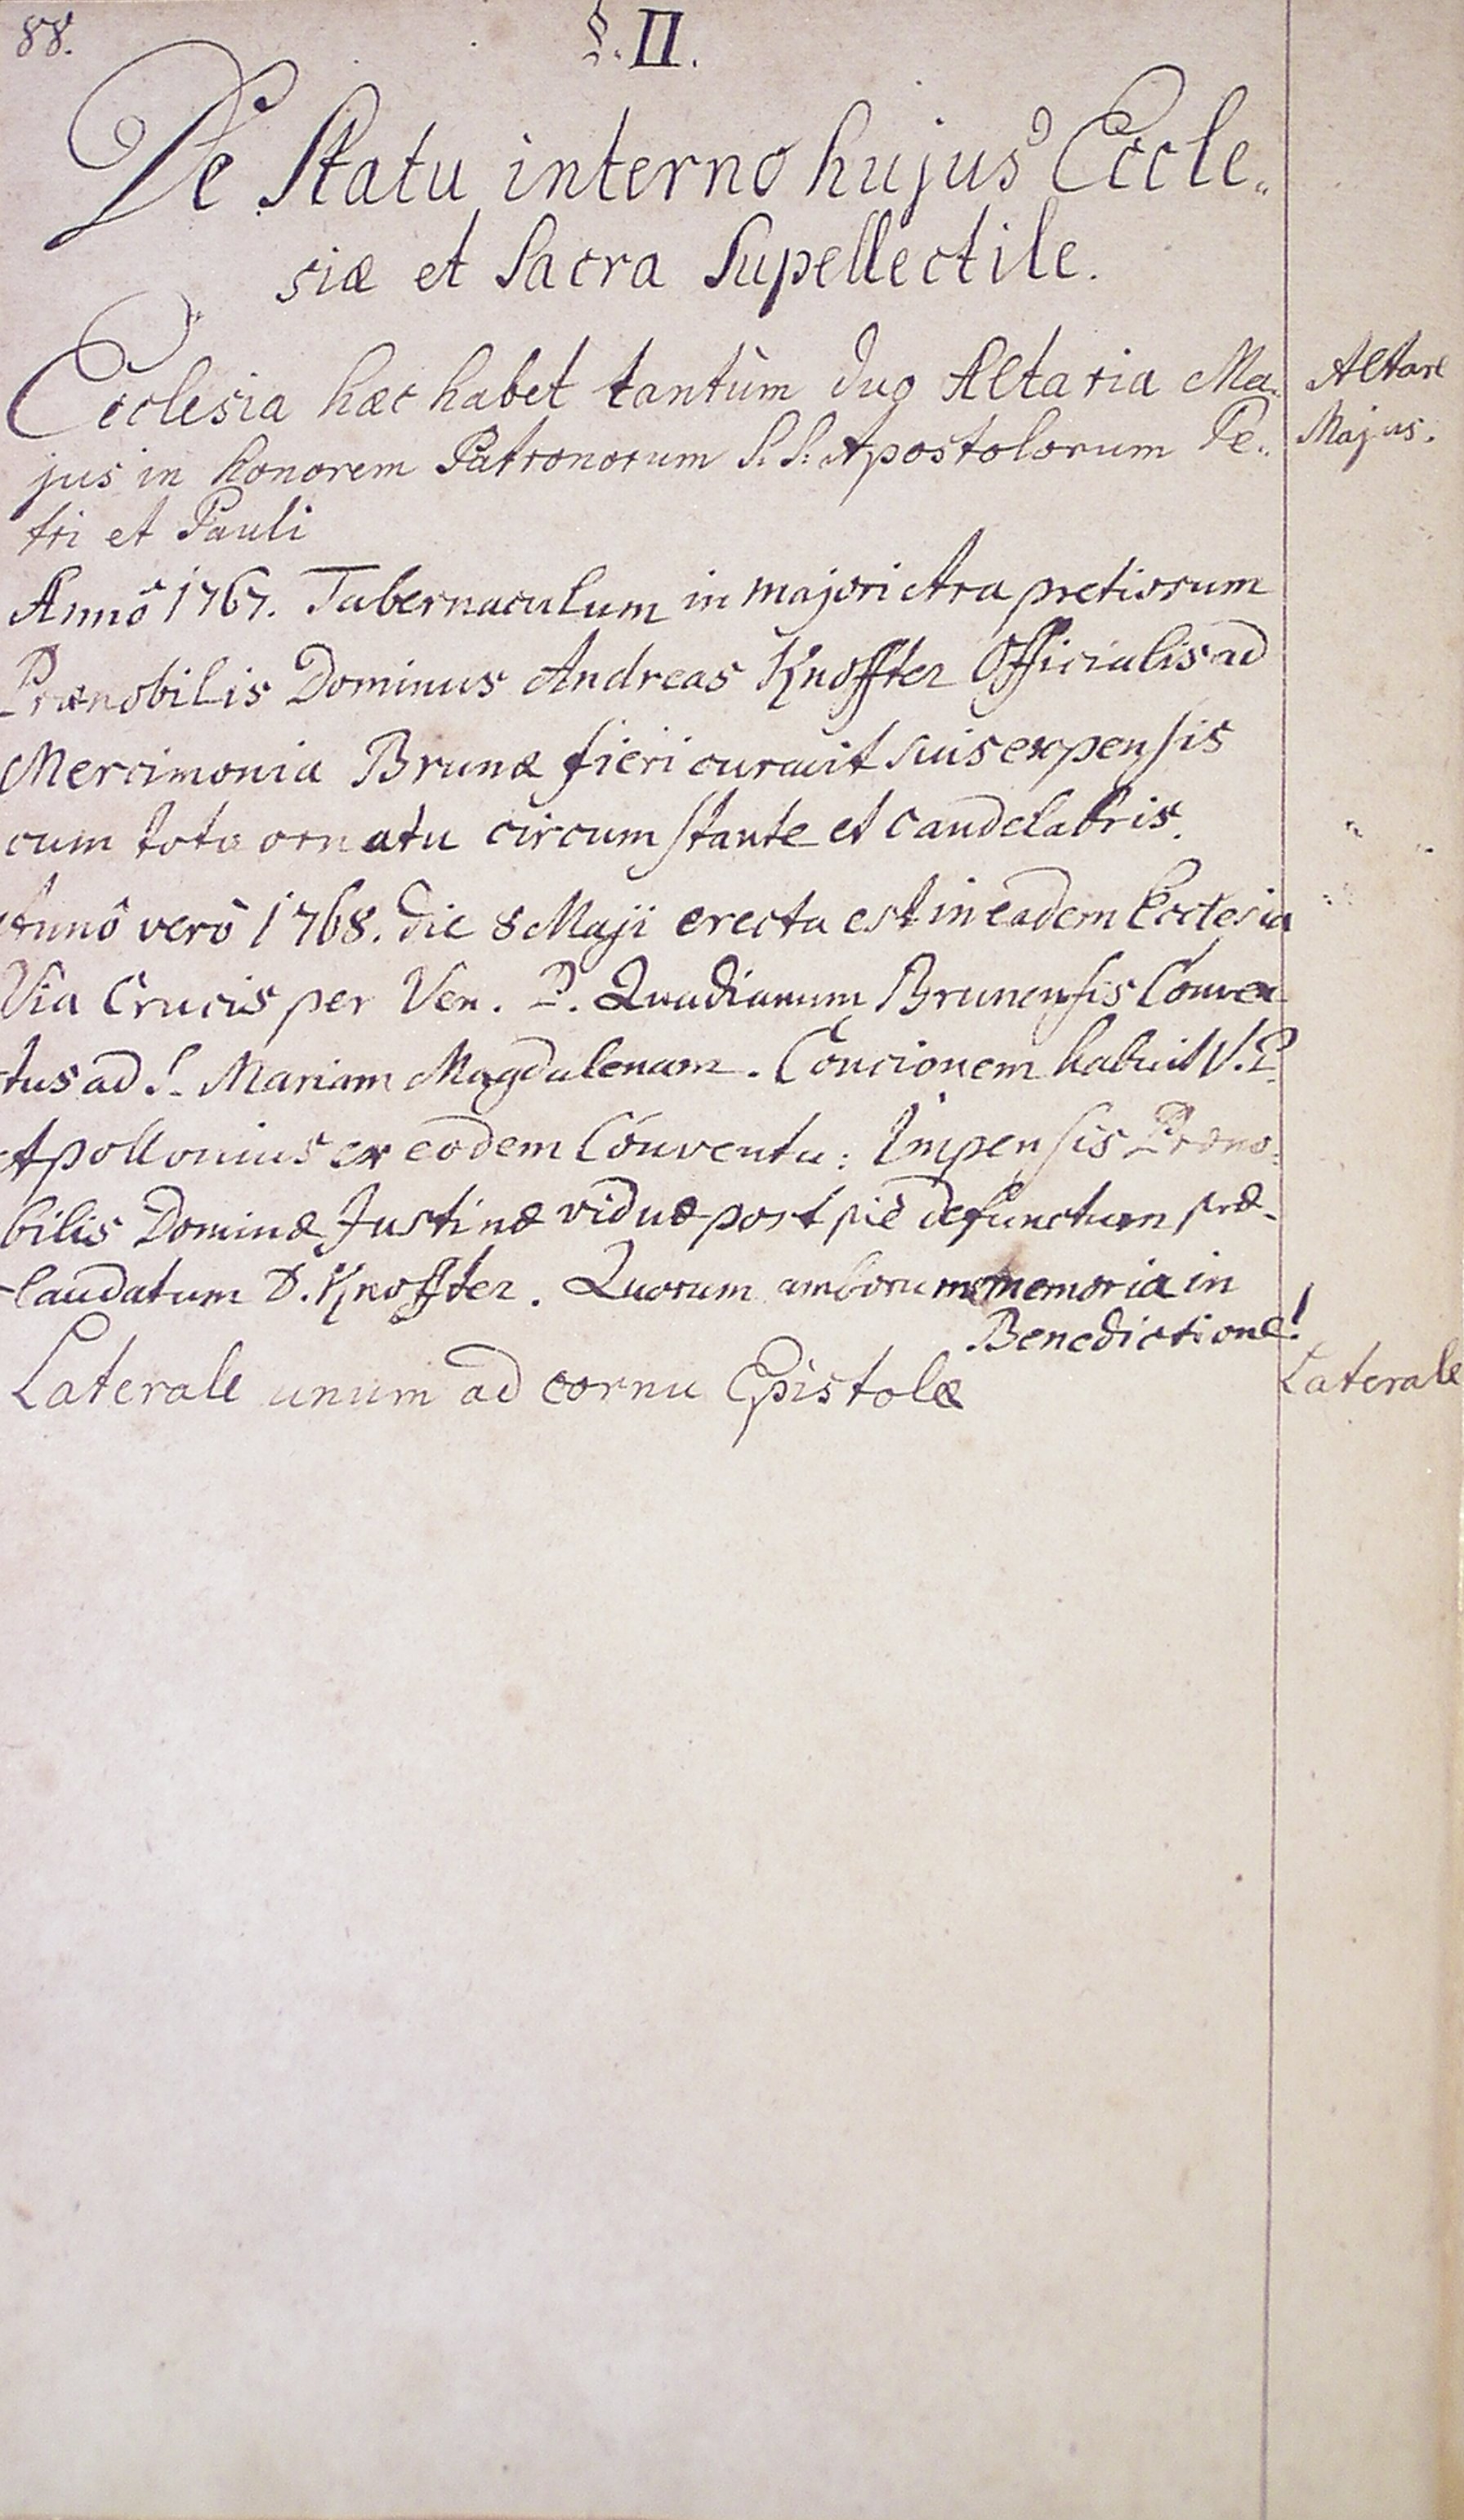 88.
§. II.
De Statu interno hujus Eccle„
siæ et Sacra Supellectile.
Ecclesia hæc habet tantùm duo Altaria Ma„
Altare
jus in honorem Patronorum S. S. Apostolorum Pe„
Majus.
tri et Pauli
Annô 1767. Tabernaculum in majori Ara pretiosum
Prænobilis Dominus Andreas Knoffter Officialis ad
Mercimonia Brunæ fieri curavit suis expensis
cum toto ornatu circumstante et candelabris.
Annô verò 1768. die 8 Maji erecta est in eadem Ecclesia
Via Crucis per Ven. P. Quadianum Brunensis Conven
tus ad S. Mariam Magdalenam. Concionem habuit V. P.
Apollonius ex eodem Conventu: Impensis Præno„
bilis Dominæ Justinæ viduæ post piè defunctum præ-
laudatum D. Knoffter. Quorum amborum memoria in
Benedictione!
Laterale unum ad cornu Epistolæ
Laterale